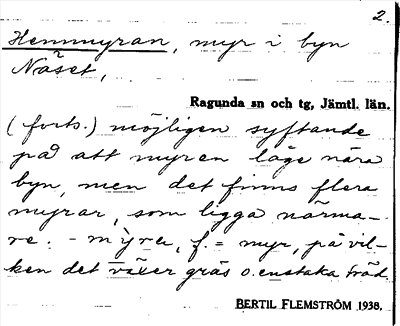 2.
Hemmyran, myr i byn
Näset,
Ragunda sn och tg, Jämtl. län.
(forts.) möjligen syftande
på att myren låge nära
byn, men det finns flera
myrar, som ligga närma-
re. - mỳra, f. = myr, på vil-
ken det växer gräs o. enstaka träd.
BERTIL FLEMSTRÖM 1938.